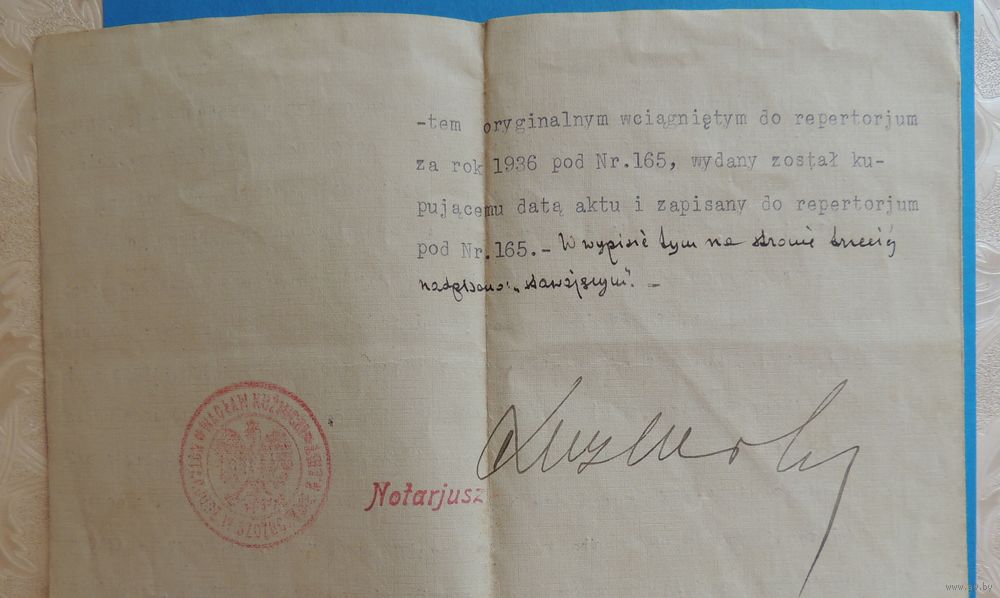 -tem oryginalnym wciągniętym do repertorjum
za rok 1936 pod Nr.165, wydany został ku-
pującemu datą aktu i zapisany do repertorjum
pod Nr.165.- W wypisie tym na stronie trzeciej
nadpisano: „stawajszym". -
Notarjusz
WACŁAW